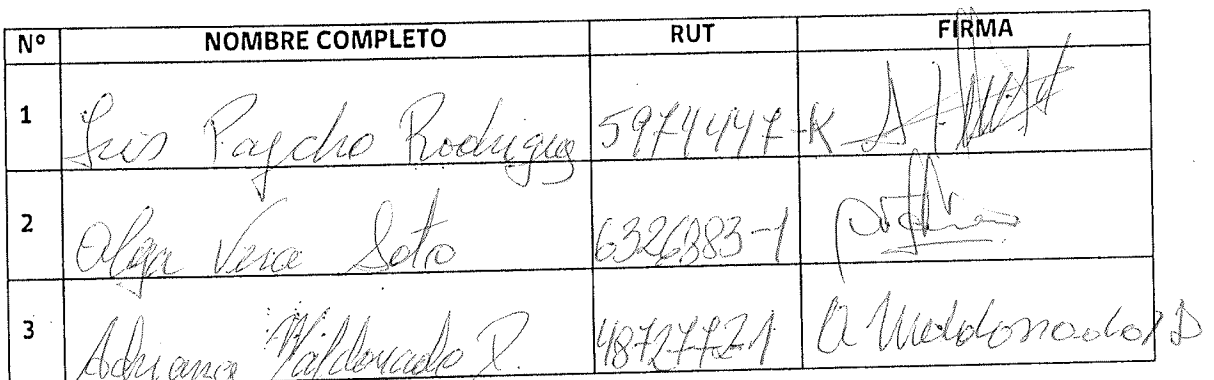 Nº NOMBRE COMPLETO RUT FIRMA
1 Luis Paycho Rodriguez 5974447-K
2 Olga Vera Soto 6326883-1
3 Adriana Maldonado D. 4872772-1 A Maldonado D